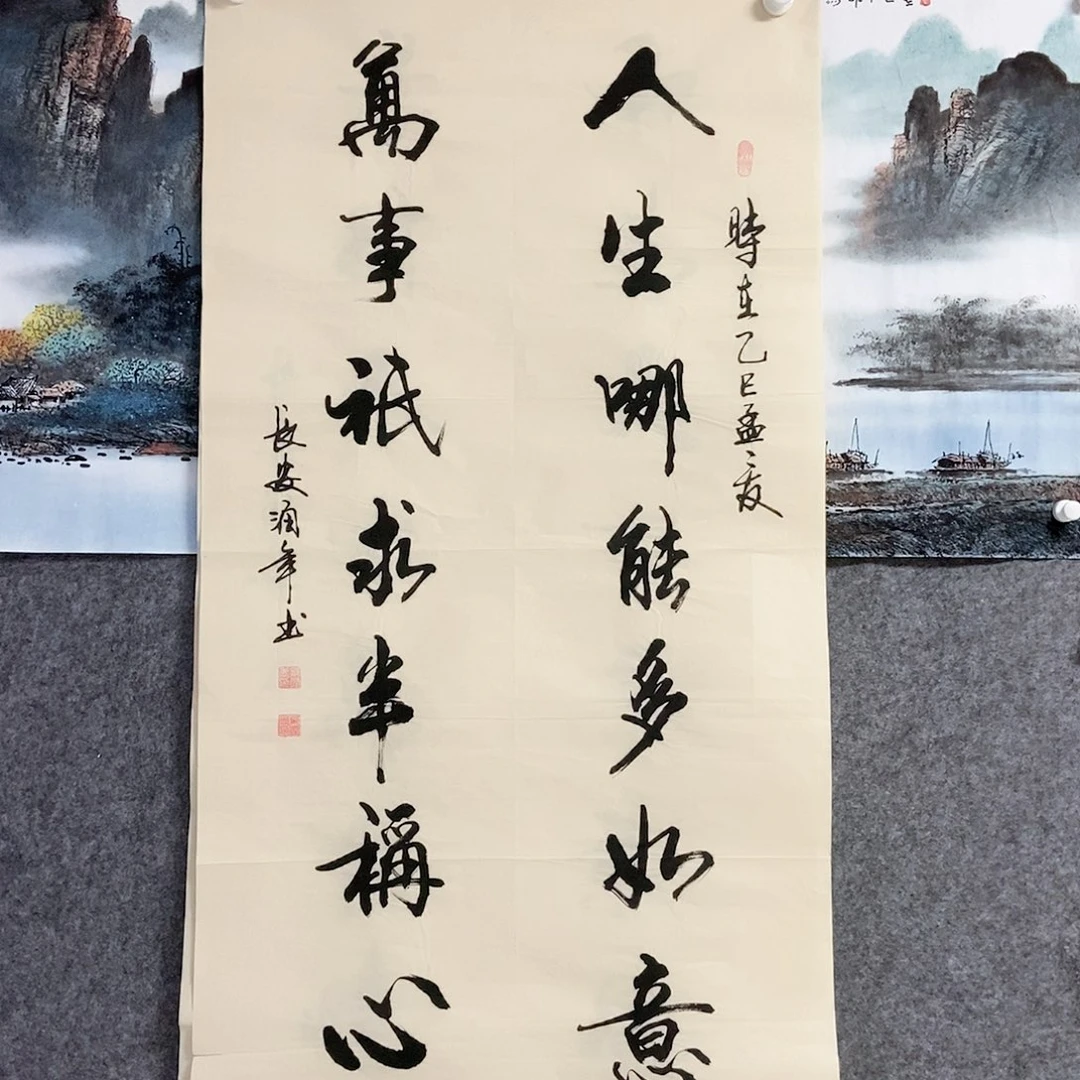 時在乙巳孟夏
人生哪能多如意
萬事祇求半稱心
長安潤年书